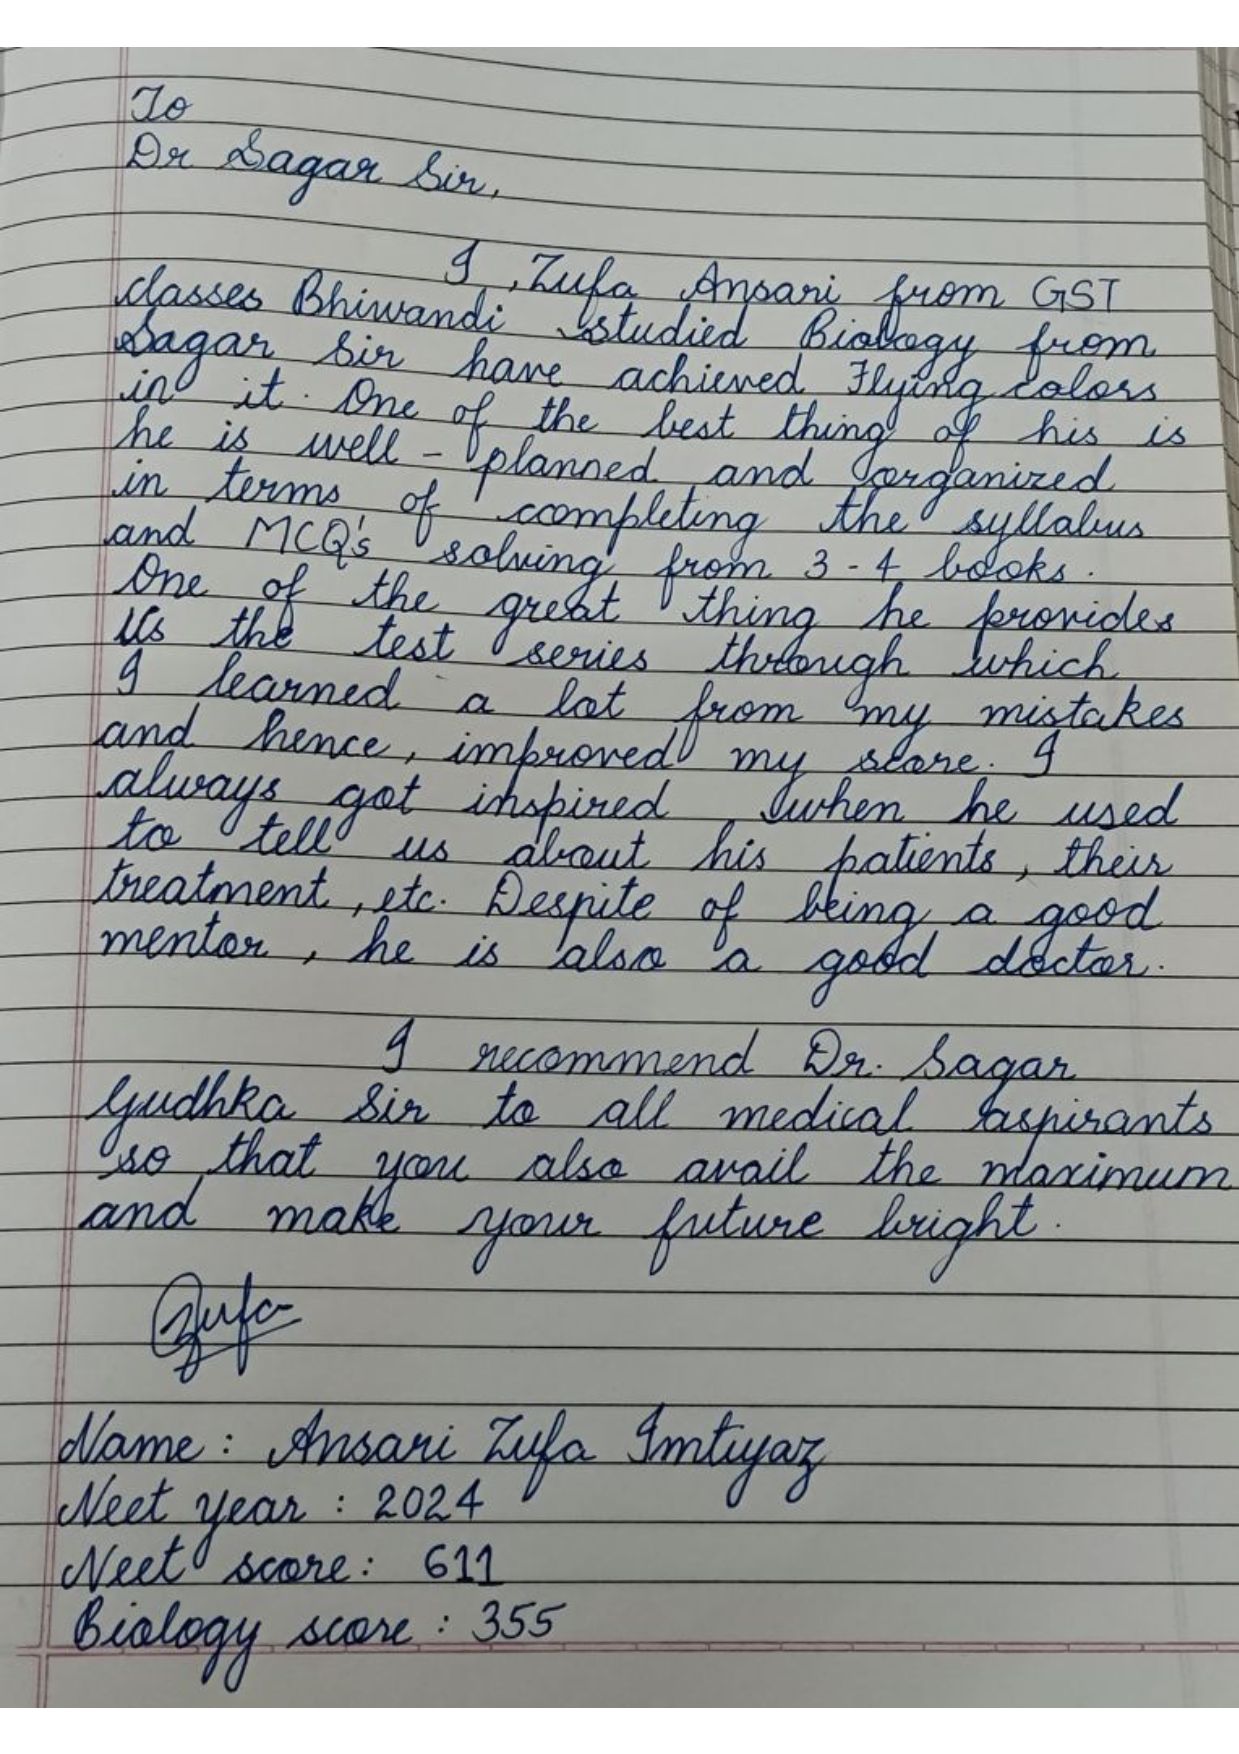 To
Dr Sagar Sir,
I, Zufa Ansari from GST
classes Bhiwandi studied Biology from
Sagar Sir have achieved Flying colors
in it. One of the best thing of his is
he is well - planned and organized
in terms of completing the syllabus
and MCQ's solving from 3 - 4 books.
One of the great thing he provides
us the test series through which
I learned a lot from my mistakes
and hence, improved my score. I
always got inspired when he used
to tell us about his patients, their
treatment, etc. Despite of being a good
mentor, he is also a good doctor.
I recommend Dr. Sagar
Gudhka Sir to all medical aspirants
so that you also avail the maximum
and make your future bright.
Zufa
Name : Ansari Zufa Imtiyaz
Neet year : 2024
Neet score : 611
Biology score : 355